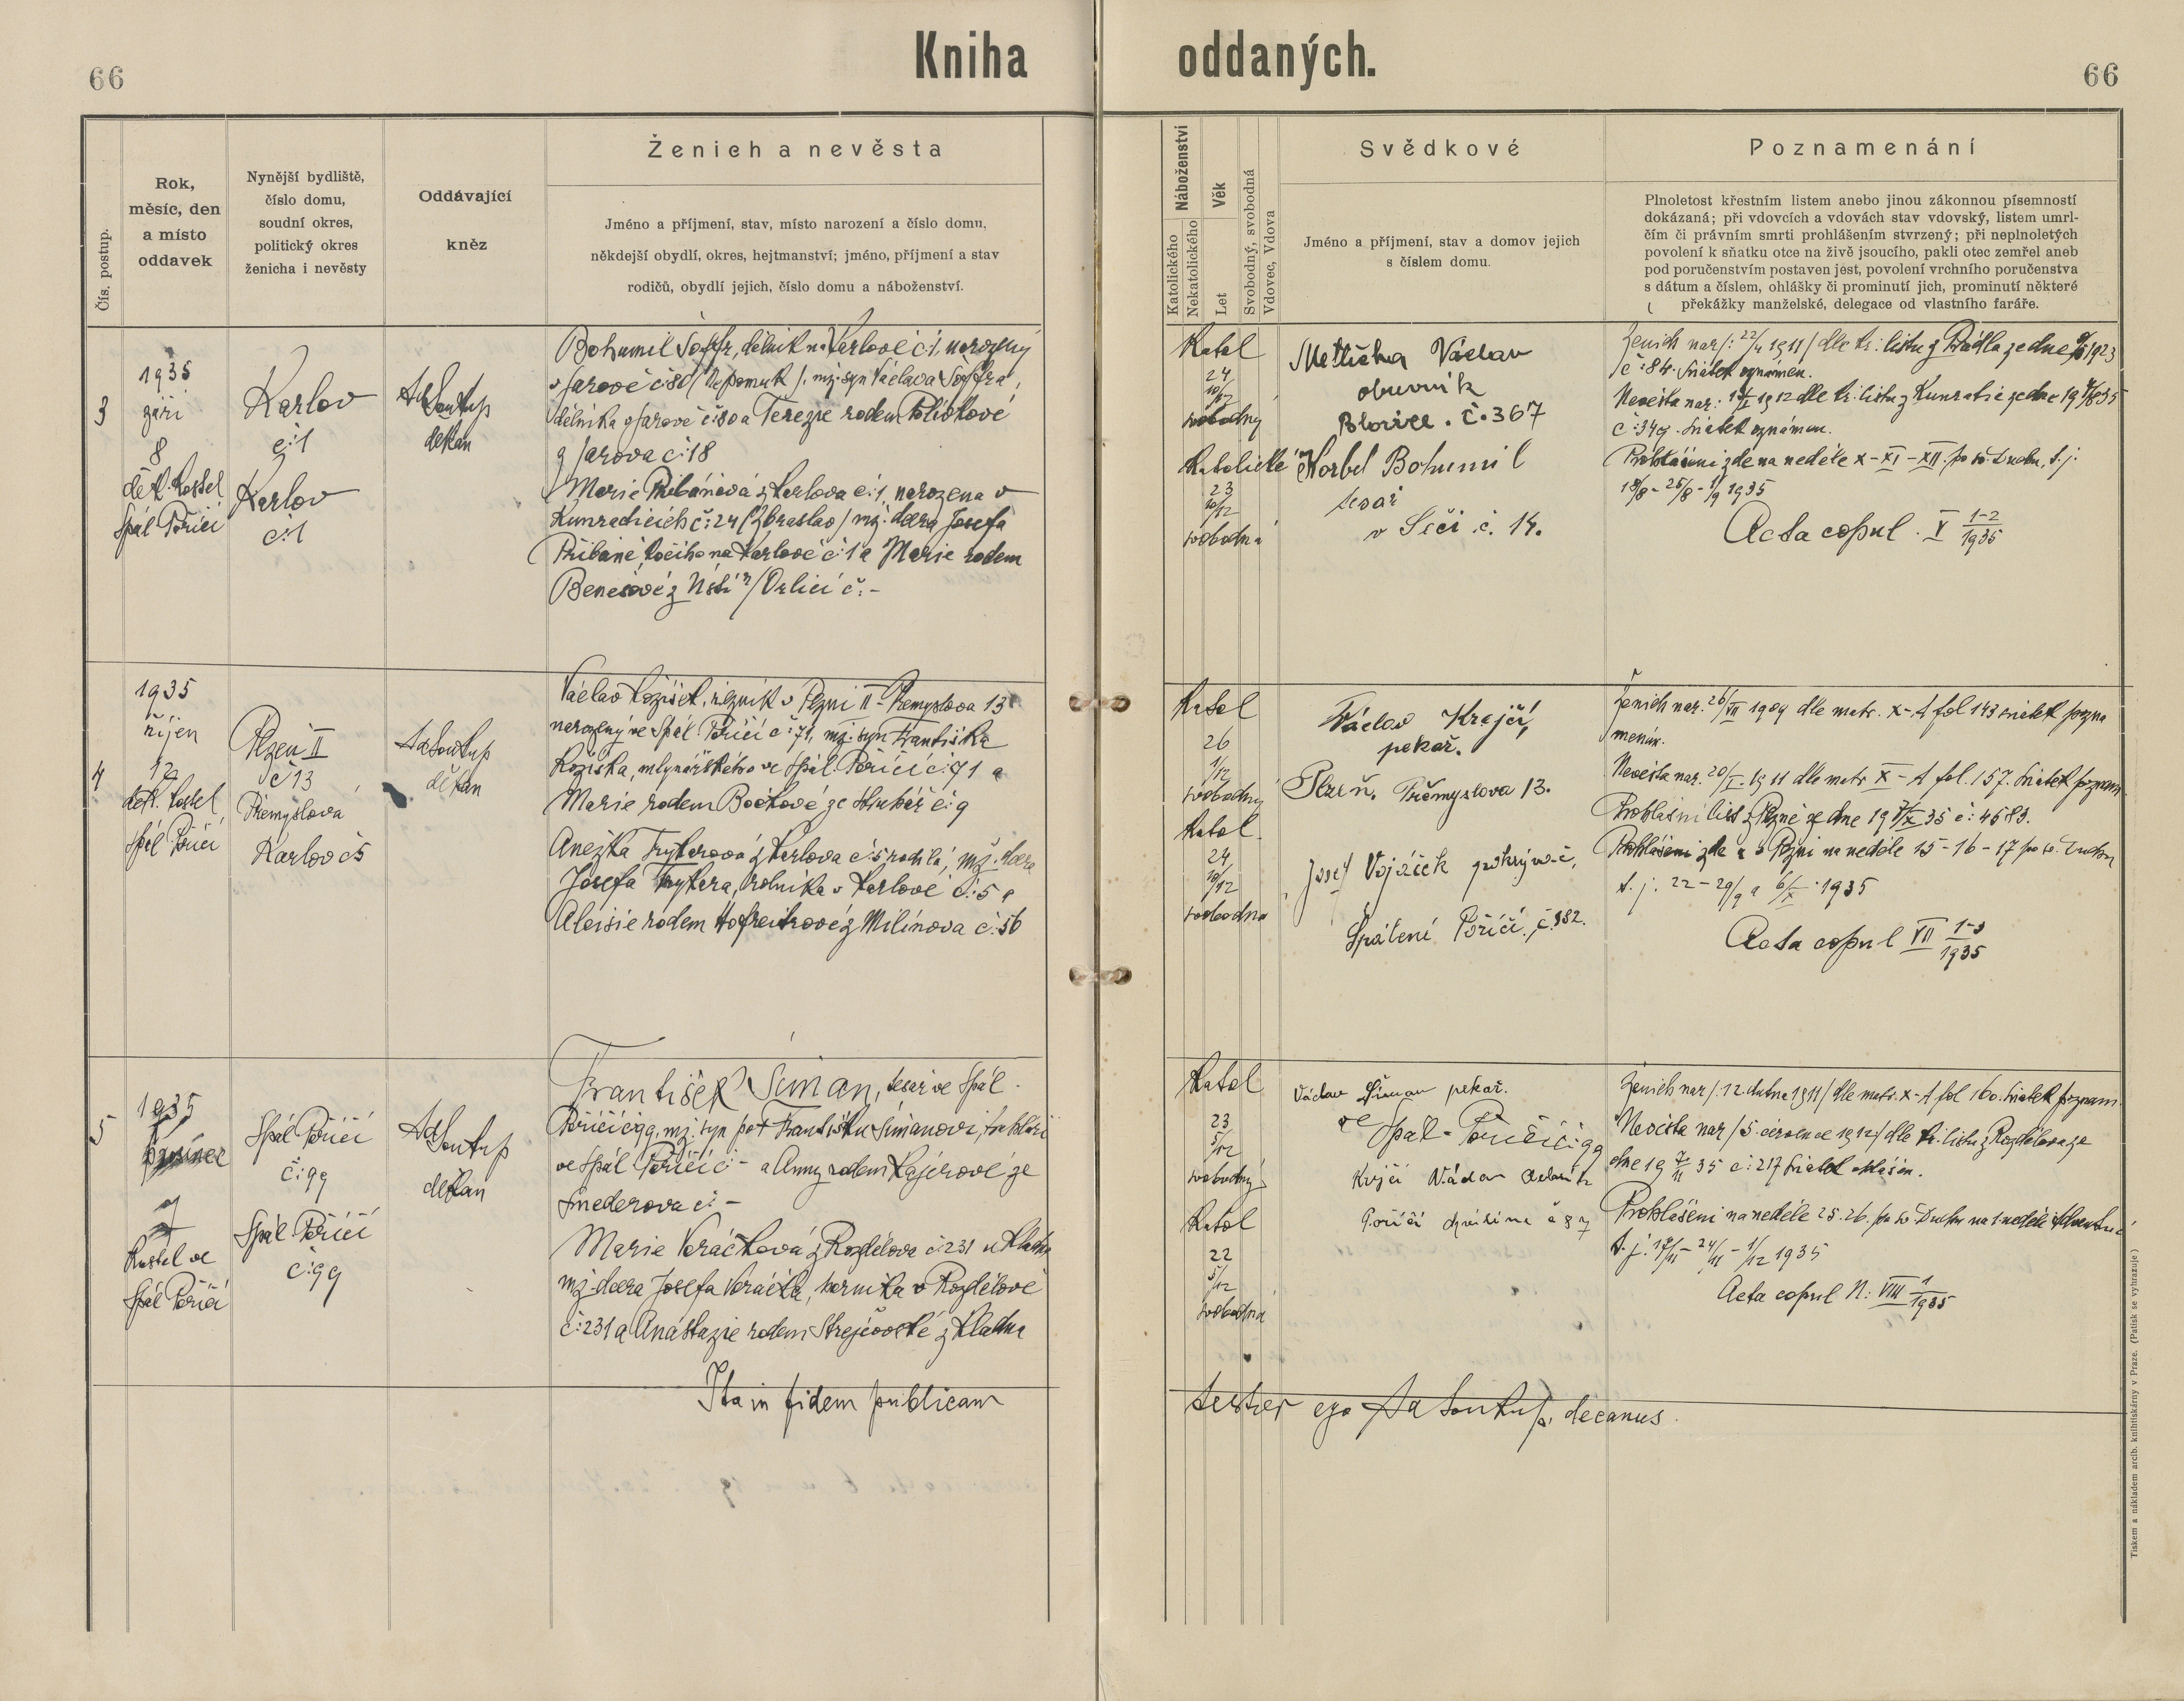 66
Kniha oddaných.
66
Čís. postup.
Rok,
měsíc, den
a místo
oddavek
Nynější bydliště,
číslo domu,
soudní okres,
politický okres
ženicha i nevěsty
Oddávající
kněz
Ženich a nevěsta
Jméno a příjmení, stav, místo narození a číslo domu,
někdejší obydlí, okres, hejtmanství; jméno, příjmení a stav
rodičů, obydlí jejich, číslo domu a náboženství.
Náboženství
Katolického
Nekatolického
Věk
Let
Svobodný, svobodná
Vdovec, Vdova
Svědkové
Jméno a příjmení, stav a domov jejich
s číslem domu.
Poznamenání
Plnoletost křestním listem anebo jinou zákonnou písemností
dokázaná; při vdovcích a vdovách stav vdovský, listem umrl-
čím či právním smrti prohlášením stvrzený; při neplnoletých
povolení k sňatku otce na živě jsoucího, pakli otec zemřel aneb
pod poručenstvím postaven jest, povolení vrchního poručenstva
s dátum a číslem, ohlášky či prominutí jich, prominutí některé
překážky manželské, delegace od vlastního faráře.
3
1935
září
8
děk. kostel
Spál Poříčí
Karlov
č:1
Karlov
č:1
Ad Soukup
děkan
Bohumil dělník na Karlově č:1, narozený
v Jarově č:80 (Nepomuk), mž. syn Václava
dělníka z Jarově č:80 a Terezie rodem
z Jarova č:18
Marie Přibáňová z Karlova č:1, narozena v
Kunradicích č:24 (Zbraslav) mž. dcera Josefa
Přibáně, kočího na Karlově č:1 a Marie rodem
Benešové z Ústí n/Orlicí č:-
Katol
24
10/12
svobodný
Katolické
23
10/12
svobodná
Mettička Václav
obuvník
Blovice. č.367
Korbel Bohumil
tesař
v Seči č. 14.
Ženich nar/: 22/ 1911/ dle kř. listu z Prádla ze dne 1923
č:84. Sňatek oznámen.
Nevěsta nar: 1912 dle kř. listu z Kunratic ze dne 1935
č:349. Sňatek oznámen.
Prohlášeni zde na neděle X-XI-XII. po sv. Duchu, t.j.
18/8-25/8-1/9 1935
Acta copul. V 1-2/1935
4
1935
říjen
12
děk. kostel
Spál Poříčí
Plzeň II
č 13
Přemyslova
Karlov č5
Ad Soukup
děkan
Václav Kozíšek, řezník v Plzni II - Přemyslova 13
narozený ve Spál. Poříčí č:71, mž. syn Františka
Kozíška, mlynářského ve Spál. Poříčí č:71 a
Marie rodem Bočkové ze č:9
Anežka Trykarova z Karlova č:5 rodilá, mž. dcera
Josefa Trykara, rolníka v Karlově č:5 a
Aloisie rodem Hofreitrové z Milínova č:56
Katol
26
1/12
svobodný
Katol
24
10/12
svobodná
Václav Krejčí,
pekař.
Plzeň, Přemyslova 13.
Josef Vojáček pokrývač,
Spálené Poříčí, č.182.
Ženich nar. 26/VII 1909 dle matr. X-A fol 143 sňatek pozna
menán.
Nevěsta nar. 20/I. 1911 dle matr X-A fol. 157. Sňatek poznam.
Prohlášní list z Plzně ze dne 19 7/X 35 č: 4683.
Prohlášeni zde a v Plzni na neděle 15-16-17 po sv. Duchu
t.j. 22-29/9 a 6/X 1935
Acta copul VII 1-3/1935
5
1935
7
Kostel ve
Spál Poříčí
Spál Poříčí
č:99
Spál Poříčí
č:99
Ad Soukup
děkan
František Šiman, tesař ve Spál.
Poříčí č:99, mž. syn po + Františku Šimanovi, truhláři
ve Spál Poříčí č:- a Anny rodem Kajerové ze
Smederova č:-
Marie Voráčková z Rozdělova č:231 u Kladna
mž. dcera Josefa Voráčka, horníka v Rozdělově
č:231 a Anastazie rodem Strejčovské z Kladna
Katol
23
5/12
svobodný
Katol
22
5/12
svobodná
Václav Šiman pekař.
ve Spál-Poříčí č:99
Krejčí Václav
Poříčí č 87
Ženich nar/: 12. dubna 1911/ dle matr. X-A fol 160. Sňatek poznam.
Nevěsta nar/ 5. července 1912/ dle kř. listu z Rozdělova ze
dne 19 7/11 35 č:217 Sňatek ohlášen.
Prohlášeni na neděle 25. 26. po sv. Duchu na 1 neděli Adventní
t.j. 17/11 - 24/11 - 1/12 1935
Acta copul N: VIII 1/1935
Ita in fidem publicam testier ego Ad Soukup, decanus.
Tiskem a nákladem arcib. knihtiskárny v Praze. (Patisk se vyhrazuje.)